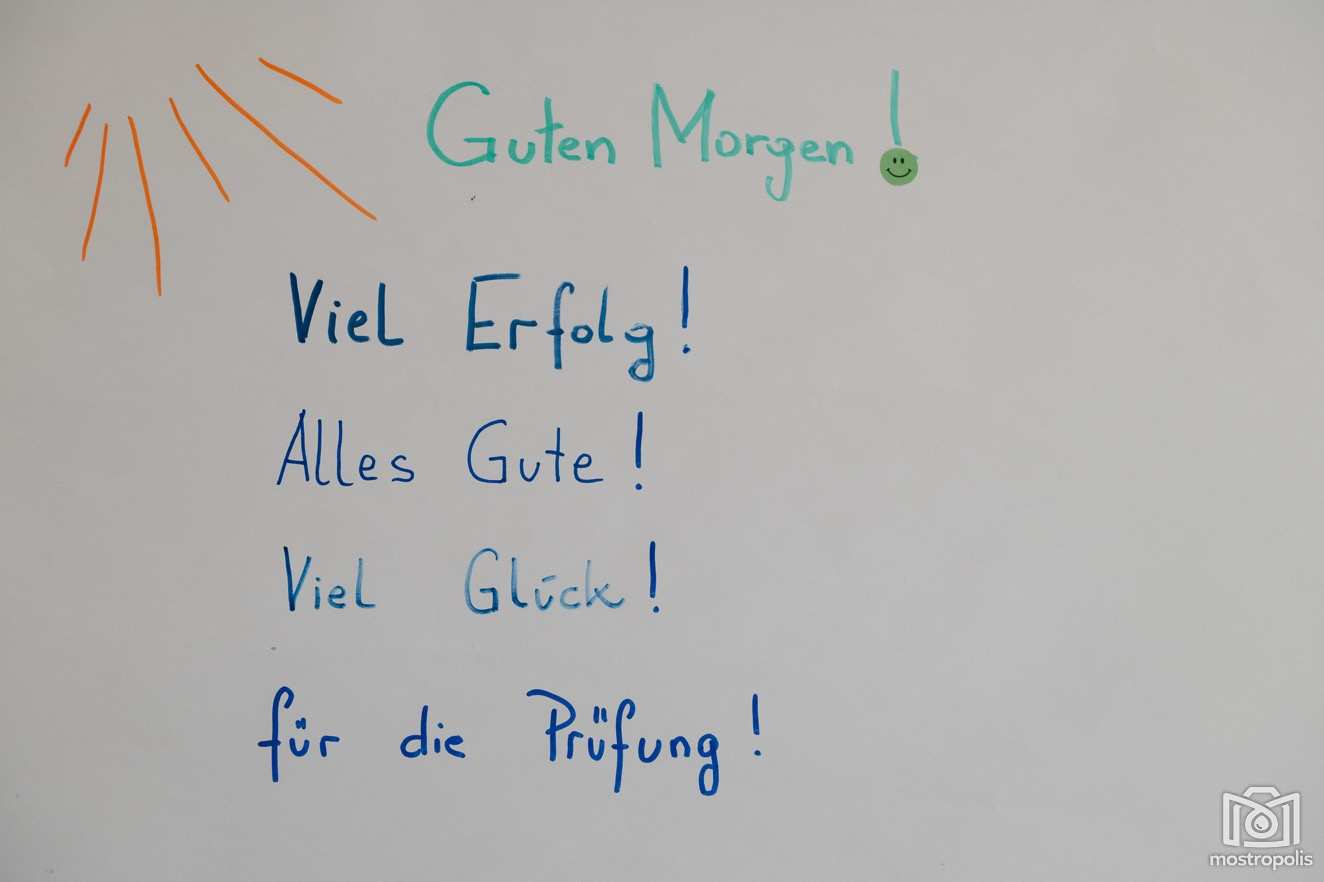 Guten Morgen!
Viel Erfolg!
Alles Gute!
Viel Glück!
für die Prüfung!
mostropolis